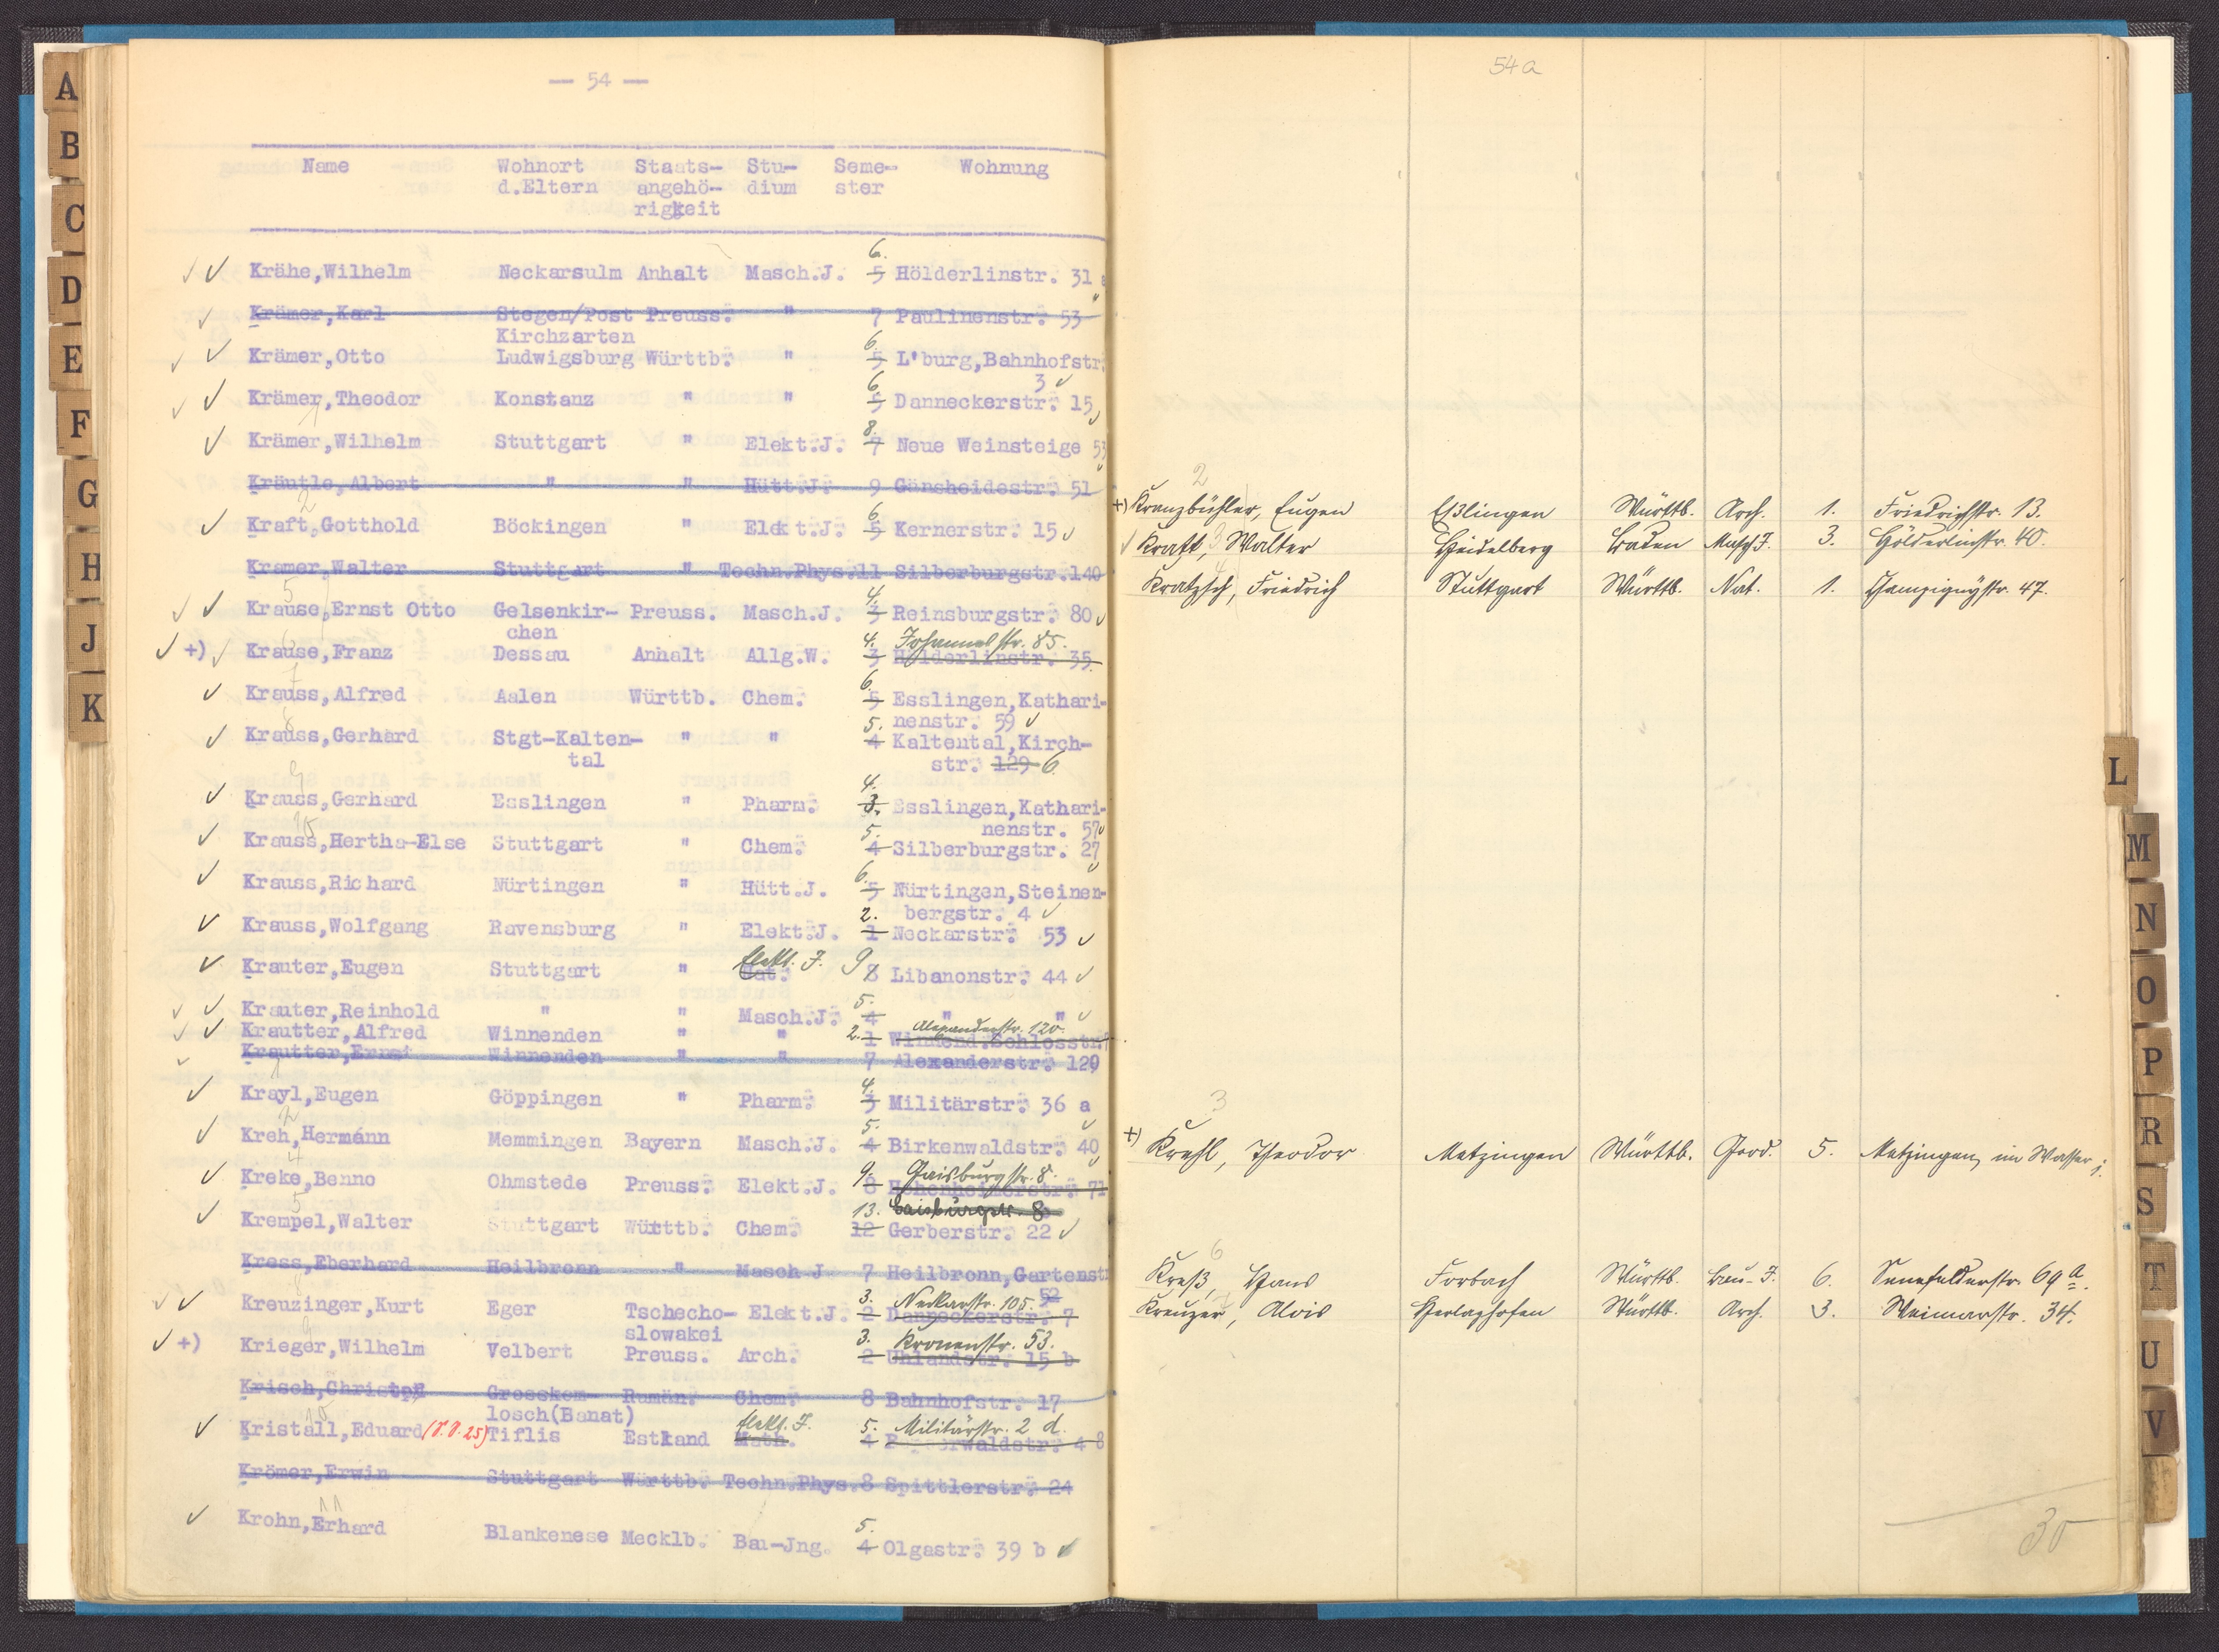 — 54 —
Name Wohnort Staats- Stu- Seme- Wohnung
d.Eltern angehö- dium ster
rigkeit
Krähe,Wilhelm Neckarsulm Anhalt Masch.J. 6. 5 Hölderlinstr. 31
Krämer,Karl Stegen/Post Preuss. " 7 Paulinenstr. 53
Kirchzarten
Krämer,Otto Ludwigsburg Württb. " 6. 5 L'burg,Bahnhofstr.
3
Krämer,Theodor Konstanz " " 6. 5 Danneckerstr. 15
Krämer,Wilhelm Stuttgart " Elekt.J. 8. 7 Neue Weinsteige 53
Kräutle,Albert " " Hütt.J. 9 Gänsheidestr. 51
Kraft,Gotthold Böckingen " Elekt.J. 6 5 Kernerstr. 15
Kramer,Walter Stuttgart " Techn.Phys.11 Silberburgstr.140
Krause,Ernst Otto Gelsenkir- Preuss. Masch.J. 4. 3 Reinsburgstr. 80
chen
+) Krause,Franz Dessau Anhalt Allg.W. 4. 3 Johannesstr. 85. Hölderlinstr. 35
Krauss,Alfred Aalen Württb. Chem. 6. 5 Esslingen,Kathari-
nenstr. 59
Krauss,Gerhard Stgt-Kalten- " " 5. 4 Kaltental,Kirch-
tal str. 129 6.
Krauss,Gerhard Esslingen " Pharm. 4. 3. Esslingen,Kathari-
nenstr. 57
Krauss,Hertha-Else Stuttgart " Chem. 5. 4 Silberburgstr. 27
Krauss,Richard Nürtingen " Hütt.J. 6. 5 Nürtingen,Steinen-
bergstr. 4
Krauss,Wolfgang Ravensburg " Elekt.J. 2. 1 Neckarstr. 53
Krauter,Eugen Stuttgart " Elekt. J. 9 8 Libanonstr. 44
Krauter,Reinhold " " Masch.J. 5. 4 " "
Krautter,Alfred Winnenden " " 2. 1 Alexanderstr. 120. Winnend.Schlosstr.
Krautter,Ernst Winnenden " " 7 Alexanderstr. 120
Krayl,Eugen Göppingen " Pharm. 4. 3 Militärstr. 36 a
Kreh,Hermann Memmingen Bayern Masch.J. 5. 4 Birkenwaldstr. 40
Kreke,Benno Ohmstede Preuss. Elekt.J. 9. 8 Gaisburgstr. 8. Hohenheimerstr. 71
Gaisburgstr. 8
Krempel,Walter Stuttgart Württb. Chem. 13. 12 Gerberstr. 22
Kress,Eberhard Heilbronn " Masch J 7 Heilbronn,Gartenstr
52
Kreuzinger,Kurt Eger Tschecho- Elekt.J. 3. 2 Neckarstr. 105. Danneckerstr. 7
slowakei
+) Krieger,Wilhelm Velbert Preuss. Arch. 3. 2 Kronenstr. 53. Uhlandstr. 15 b
Krisch,Christof Grosskom- Rumän. Chem. 8 Bahnhofstr. 17
losch(Banat)
Kristall,Eduard Tiflis Estland Elekt. J. Math. 5. 4 Militärstr. 2 d.
Krömer,Erwin Stuttgart Württb. Techn.Phys.8 Spittlerstr. 24
Krohn,Erhard Blankenese Mecklb. Bau-Jng. 5. 4 Olgastr. 39 b
54a
2
+) Kranzbühler, Eugen Eßlingen Württb. Arch. 1. Friedrichstr. 13.
Kraft, 3 Walter Heidelberg Baden Masch J. 3. Hölderlinstr. 40.
Kratzsch, Friedrich Stuttgart Württb. Nat. 1. Champignystr. 47.
3
+) Krehl, Theodor Metzingen Württb. Geod. 5. Metzingen,
6
Kreß, Hans Forbach Württb. Bau-J. 6. Senefelderstr. 69 a.
Kreuzer, Alois Herlazhofen Württb. Arch. 3. Weimarstr. 34.
30
A
B
C
D
E
F
G
H
J
K
L
M
N
O
P
R
S
T
U
V